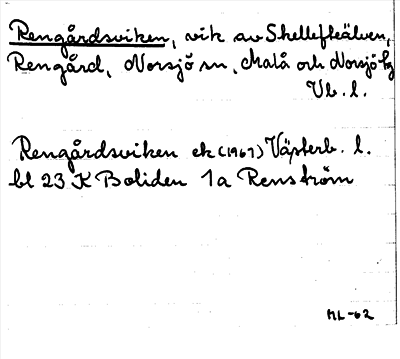 Rengårdsviken, vik av Skellefteälven,
Rengård, Norsjö sn, Malå och Norsjö tg
Vb. l.
Rengårdsviken ek (1967) Västerb. l.
bl 23 K Boliden 1a Renström
ML-62